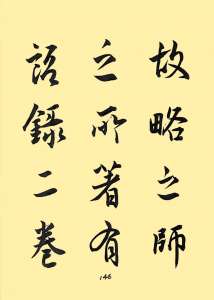 故略之師
之所著有
語錄二卷
146